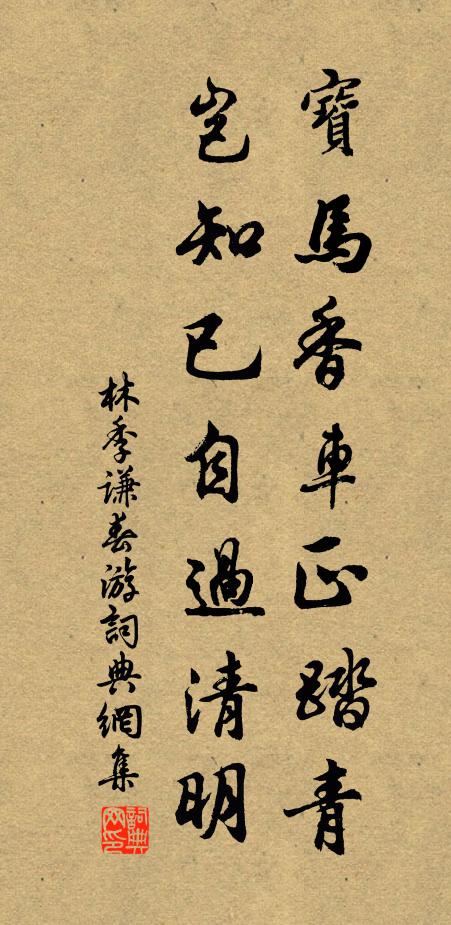 寶馬香車正踏青
豈知已自過清明
林季謙春游詞典網集
詞典网印